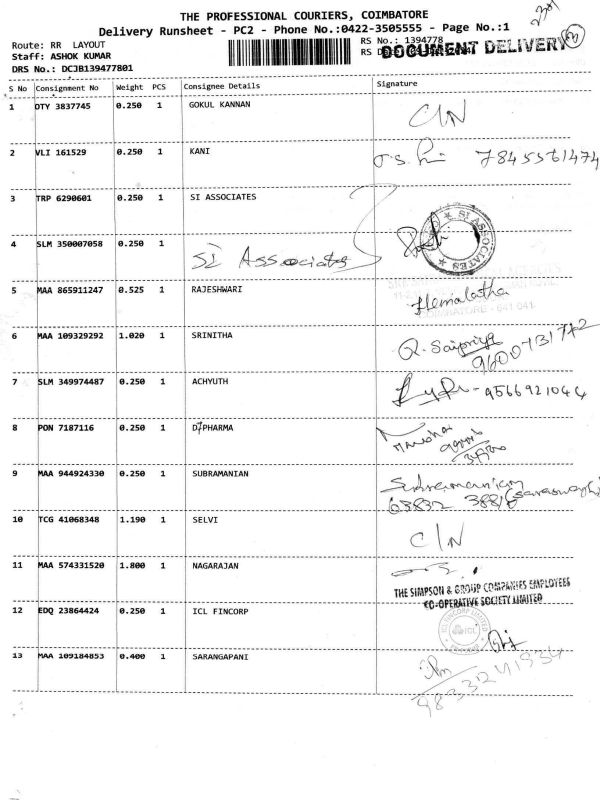 THE PROFESSIONAL COURIERS, COIMBATORE
Delivery Runsheet - PC2 - Phone No.:0422-3505555 - Page No.:1
Route: RR LAYOUT
RS No.: 1394778
Staff: ASHOK KUMAR
RS
DOCUMENT DELIVERY
DRS No.: DCJB139477801
S No Consignment No Weight PCS Consignee Details Signature
1 DTY 3837745 0.250 1 GOKUL KANNAN C/N
2 VLI 161529 0.250 1 KANI 7845561474
3 TRP 6290601 0.250 1 SI ASSOCIATES
SI ASSOCIATES
4 SLM 350007058 0.250 1 SI Associates
5 MAA 865911247 0.525 1 RAJESHWARI Hemalatha
COIMBATORE - 641 041
6 MAA 109329292 1.020 1 SRINITHA R. Saipriya
9600131742
7 SLM 349974487 0.250 1 ACHYUTH 9566921044
8 PON 7187116 0.250 1 DJPHARMA
9 MAA 944924330 0.250 1 SUBRAMANIAN Subramanian
63832 38816
10 TCG 41068348 1.190 1 SELVI C/N
11 MAA 574331520 1.800 1 NAGARAJAN
THE SIMPSON & GROUP COMPANIES EMPLOYEES
CO-OPERATIVE SOCIETY LIMITED
12 EDQ 23864424 0.250 1 ICL FINCORP
ICL
13 MAA 109184853 0.400 1 SARANGAPANI